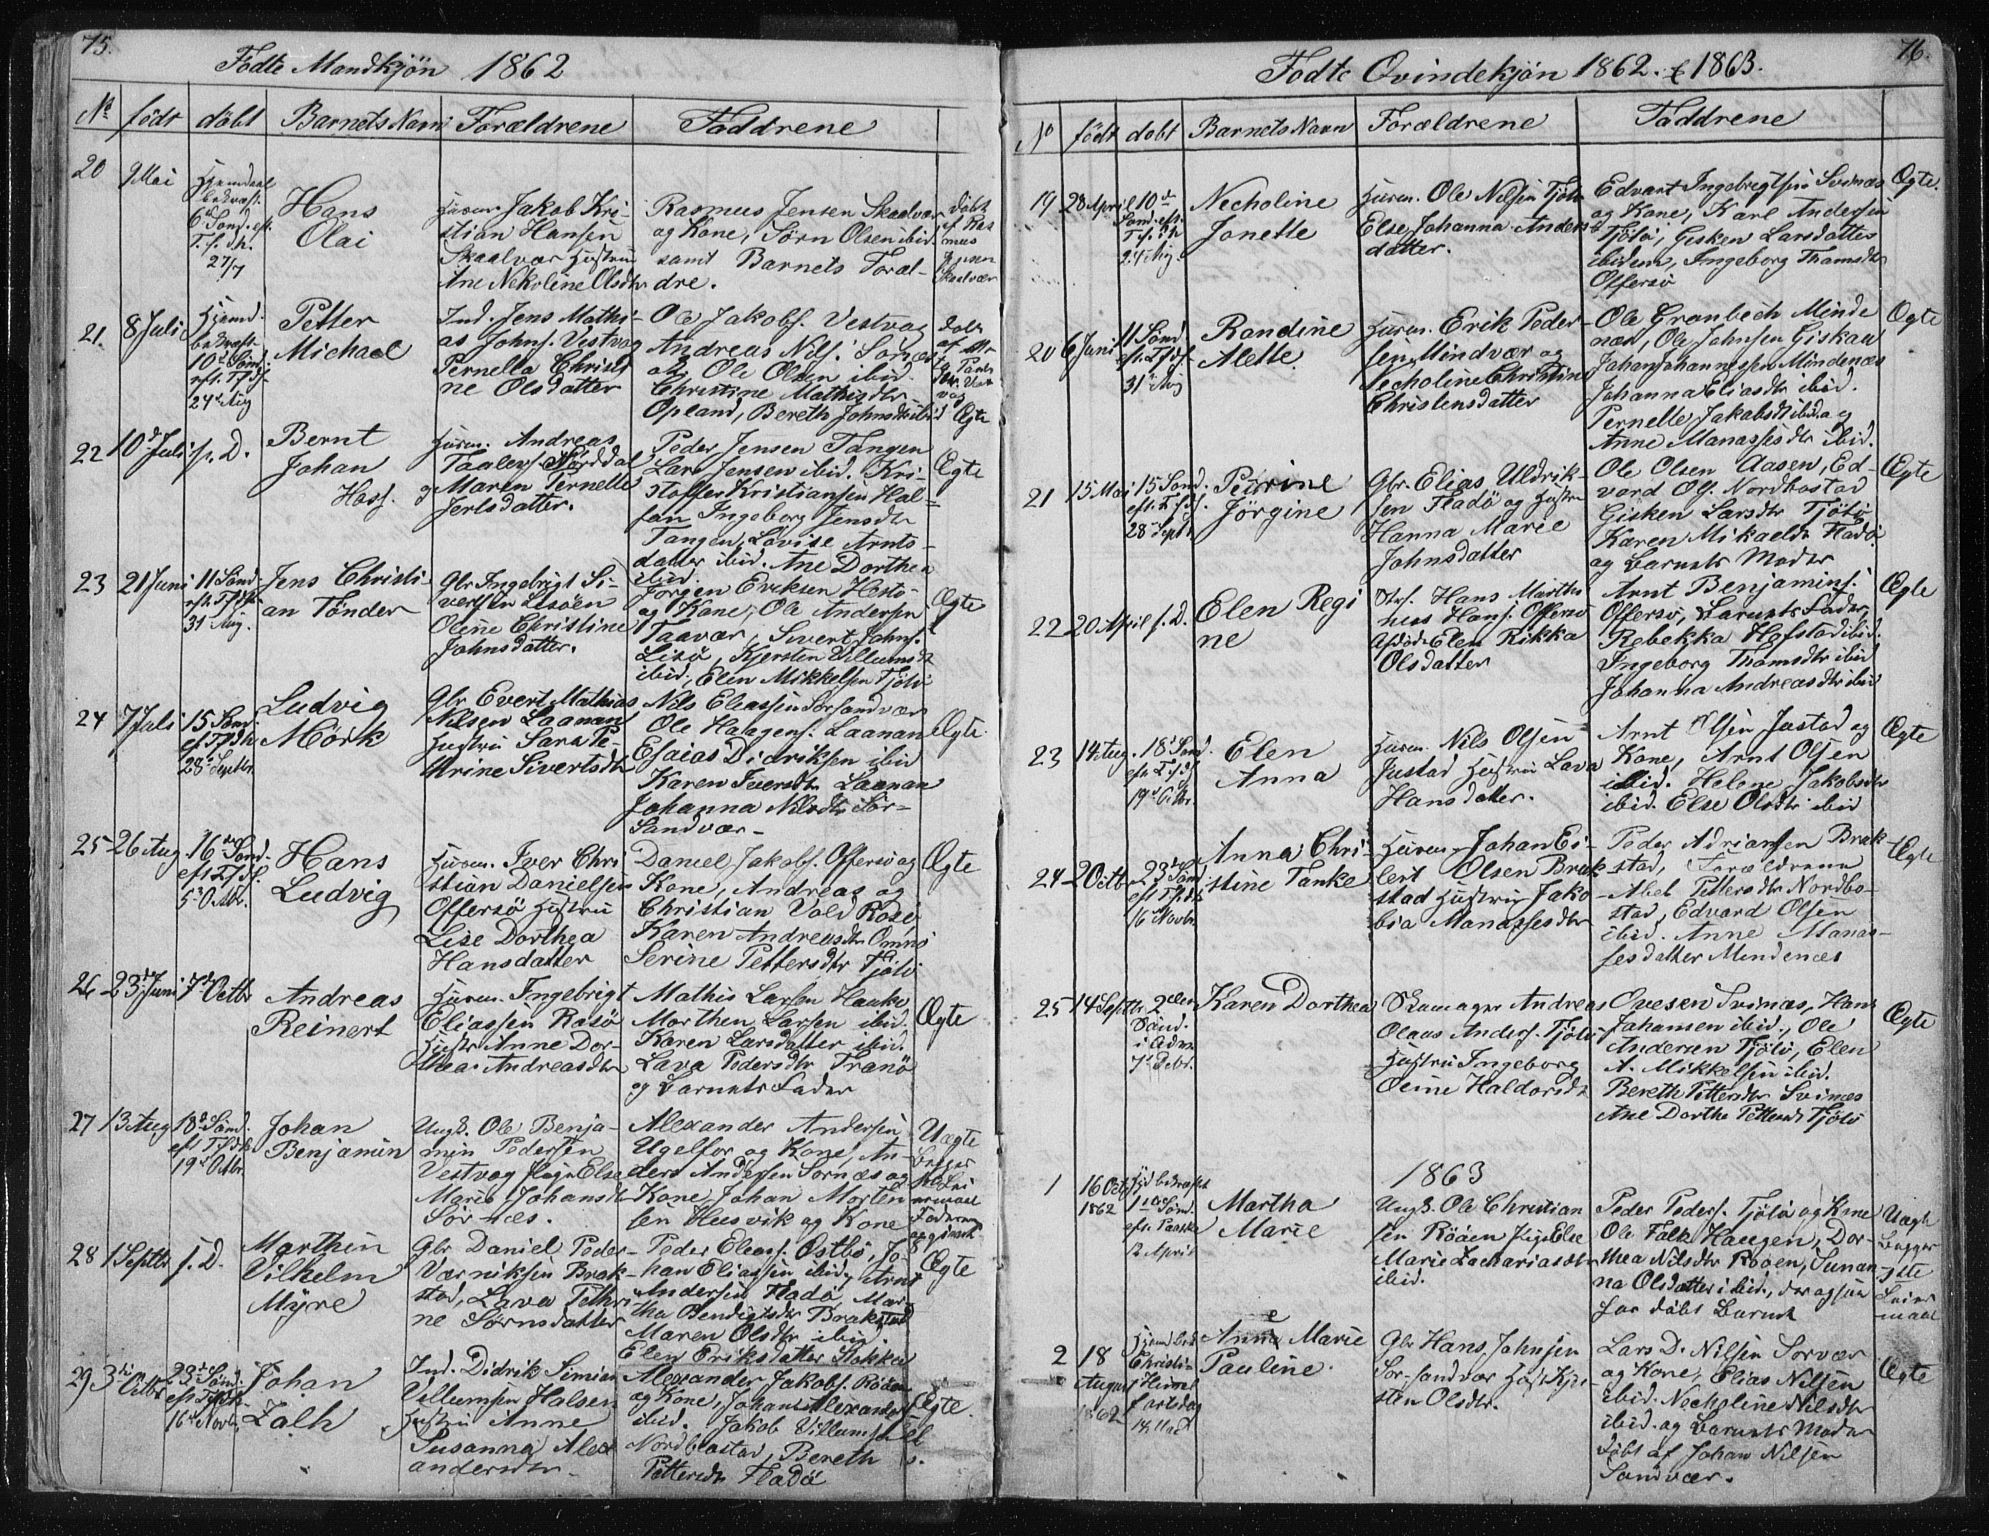 75.
Fødte Mandkjøn 1862
No født døbt Barnets Navn Forældrene Faddrene
20 9 Mai
Hjemdøbt
bekræft.
6te Sønd. eft.
Tr.
27/7
Hans
Olai
Huusm. Jakob Kri-
stian Hansen
Skaalvær Hustru
Ane Nekoline Olsdtr
Rasmus Jensen Skaalvær
og Kone, Sørn Olsen ibid.
samt Barnets Foræl-
dre.
døbt
af Ras
mus
Jensen
Skaalvær
21. 8 Juli
Hjemd.
bekræft
10de Sønd
eft.
24de Aug
Petter
Michael
Ind. Jens Mathi-
as Johns. Vestvog
Pernella Christi
ne Olsdatter
Ole Jakobs. Vestvog
Andreas Nils. Sørnæs
Ole Olsen ibid.
Christine Mathisdtr
Opland, Bereth Johnsdtr ibid
Ægte
22 10de Juli s. D.
Bernt
Johan
Hass.
Huusm. Andreas
Taales.
Maren Pernelle
Jerlsdatter.
Peder Jensen Tangen
Lars Jensen ibid. Kri-
stoffer Kristiansen Hal-
sen Ingeborg Jensdtr
Tangen, Lovise Arnts-
datter ibid. Ane Dorthea
ibid.
Ægte
23 21 Juni
11 Sønd
31 Aug.
Jens Christi-
an Tønder
Gbr. Ingebrigt Si-
vertsen Lisøen
Oline Christine
Johnsdatter.
Jørgen Eriksen Hestø-
og Kone, Ole Andersen
Taavær, Sivert Johns.
Lisø, Kjersten Villumsdtr
ibid, Elen Mikkelsen Tjøtø
Ægte
24 7 Juli
15 Sønd.
28de Septbr.
Ludvig
Mørk
Gbr Evert Mathias
Nilsen Laanan
Hustru Sara Pe-
trine Sivertsdtr
Nils Eliassen Sørsandvær
Ole Halagens. Laanan
Esaias Didriksen ibid
Karen Iversdtr Laanan
Johanna Nilsdtr Sør-
Sandvær-
Ægte.
25 26 Aug
16de Sønd
5te Octbr.
Hans
Ludvig
Huusm. Iver Chri
stian Danielsen
Offersø Hustru
Lise Dorthea
Hansdatter
Daniel Jakobs. Offersø og
Kone, Andreas og
Christian Vold Rosø
Karen Andreasdtr Omnø
Serine Pettersdtr Tjøtø
Ægte
26 23de Juni 7de Octbr
Andreas
Reinert
Huusm. Ingebrigt
Eliassen Rosø
Hustr Anne Dor-
thea Andreasdtr
Mathis Larsen
Morthen Larsen ibid.
Karen Larsdatter ibid.
Lava Pedersdtr Tranø
og Barnets Fader
Ægte
27 13 Aug
18de Sønd.
19de Octbr.
Johan
Benjamin
Ungk. Ole Benja-
min Pedersen
Vestvog Pige Else
Marie Johansdtr
Sørnæs.
Alexander Andersen
Ugelfor og Kone, An-
ders Andersen Sørnæs og
Kone, Johan Morten
sen Husvik og Kone
Uægte
28 1 Septbr s. D.
Morthin
Vilhelm
Myre
Gbr Daniel Peder
Værniksen Brak-
stad, Lava Pethri
ne Sørnsdatter
Peder Eleass. Østbø, Jo-
han Eliassen ibid, Arnt
Andersen Fladø Mar-
tha Bendigtsdtr Brakstad
Maren Olsdtr ibid.
Elen Eriksdatter Stokka
Ægte
29 3de Octbr
23de Sønd.
16de Novbr.
Johan
Zalh
Ind. Didrik Simian
Villumsen Halsen
Hustru Anne
Susanna Alex
andersdtr-
Alexander Jakobs. Røden
og Kone, Johan Alexanders.
ibid. Jakob Villumsen
Nordbostad, Bereth
Pettersdtr Fladø
Ægte.
76.
Fødte Qvindekjøn 1862. & 1863.
No født døbt Barnets Navn Forældrene Faddrene
19 28 April
10de
Sønd. eft.
24 Aug.
Necholine
Jonette
Huusm. Ole Nilsen Tjøtø
Else Johanna Anders
datter.
Edvart Ingebregtsen Svinæs
og Kone, Karl Andersen
Tjøtø, Gisken Larsdatter
ibidem, Ingeborg Thomsdtr
Offersø
Ægte.
20 6 Juni
11 Sønd
31te Aug
Randine
Alette.
Huusm. Erik Peder-
sen Mindvær og
Necholine Christine
Christensdatter
Ole Grønbech Minde
næs, Ole Johnsen Giskau
Johan Johannessen Mindenæs
Johanna Eliasdtr ibid.
Pernelle Jakobsdtr ibid. og
Anne Manassesdtr ibid.
Ægte
21 15 Mai
15 Sønd.
28 Septb
Petrine
Jørgine
Gbr. Elias Uldrik-
sen Fladø og Hustru
Hanna Marie
Johnsdatter
Ole Olsen Aasen, Ed-
vard Ols. Nordbostad
Gisken Larsdtr Tjøtø
Karen Mikaelsdtr Fladø
og Barnets Moder
Ægte
22 20 April s. D.
Elen Regi
ne
Hans Marthi
nus Hans. Offersø
Afdøde Elen Rikka
Olsdatter
Arnt Benjamins.
Offersø, Barnets Fader,
Rebekka Hofstad ibid.
Ingeborg Thomsdtr ibid
Johanna Andreasdtr ibid
Ægte
23 14 Aug.
18de Sønd.
19de Octbr.
Elen
Anna
Huusm. Nils Olsen
Justad Hustru Lava
Hansdatter.
Arnt Olsen Justad og
Kone, Arnt Olsen
ibid. Helene Jakobsdtr
ibid. Else Olsdtr ibid
Ægte
24 2 Octbr
23de Sønd
16 Novbr
Anna Chri-
stine Tanke
Huusm. Johan Ei-
lert Olsen Brak
stad Hustru Jako-
bia Manassesdtr
Peder Adriansen Brak
stad, Forældrene
Abel Pettersdtr Nordbo-
stad, Edvard Olsen
ibid. Anne Manas-
sesdatter Mindenæs
Ægte
25 14 Septbr
2den
Sønd.
i Adv.
7de Debr.
Karen Dorthea
Skomager Andreas
Olaus Anders. Tjøtø
Hustru Ingeborg
Oline Haldorsdtr
Ovesen Svinæs, Hans
Johansen ibid., Ole
Andersen Tjøtø, Elen
A. Mikkelsen ibid.
Bereth Pettersdtr Svinæs
Ane Dorthe Pettersdtr Tjøtø
Ægte
1863
1 16 Octb
1862
1ste Sønd.
eft. Paaske
12 April
Martha
Marie
Ungk. Ole Christian
sen Røøen Pige Else
Marie Zachariasdtr
ibid.
Peder Peders. Tjøtø og Kone
Ole Falk Haugen, Dor-
thea Nilsdtr Røøen, Sunan-
na Olsdatter ibid., der ogsaa
har døbt Barnet
Uægte
Begges
1ste
Leier
maal
2 18
August
1862
Hjemd. bek
Christi
Himmel
fartsdag
14 Mai
Anne Marie
Pauline.
Gbr. Hans Johnsen
Sør-Sandvær Hustr Kjer
sten Olsdtr.
Lars D. Nilsen Sorvær
og Kone, Elias Nilsen
ibid. Necholine Nilsdtr
ibid. og Barnets Moder
døbt af Johan Nilsen
Sandvær.
Ægte